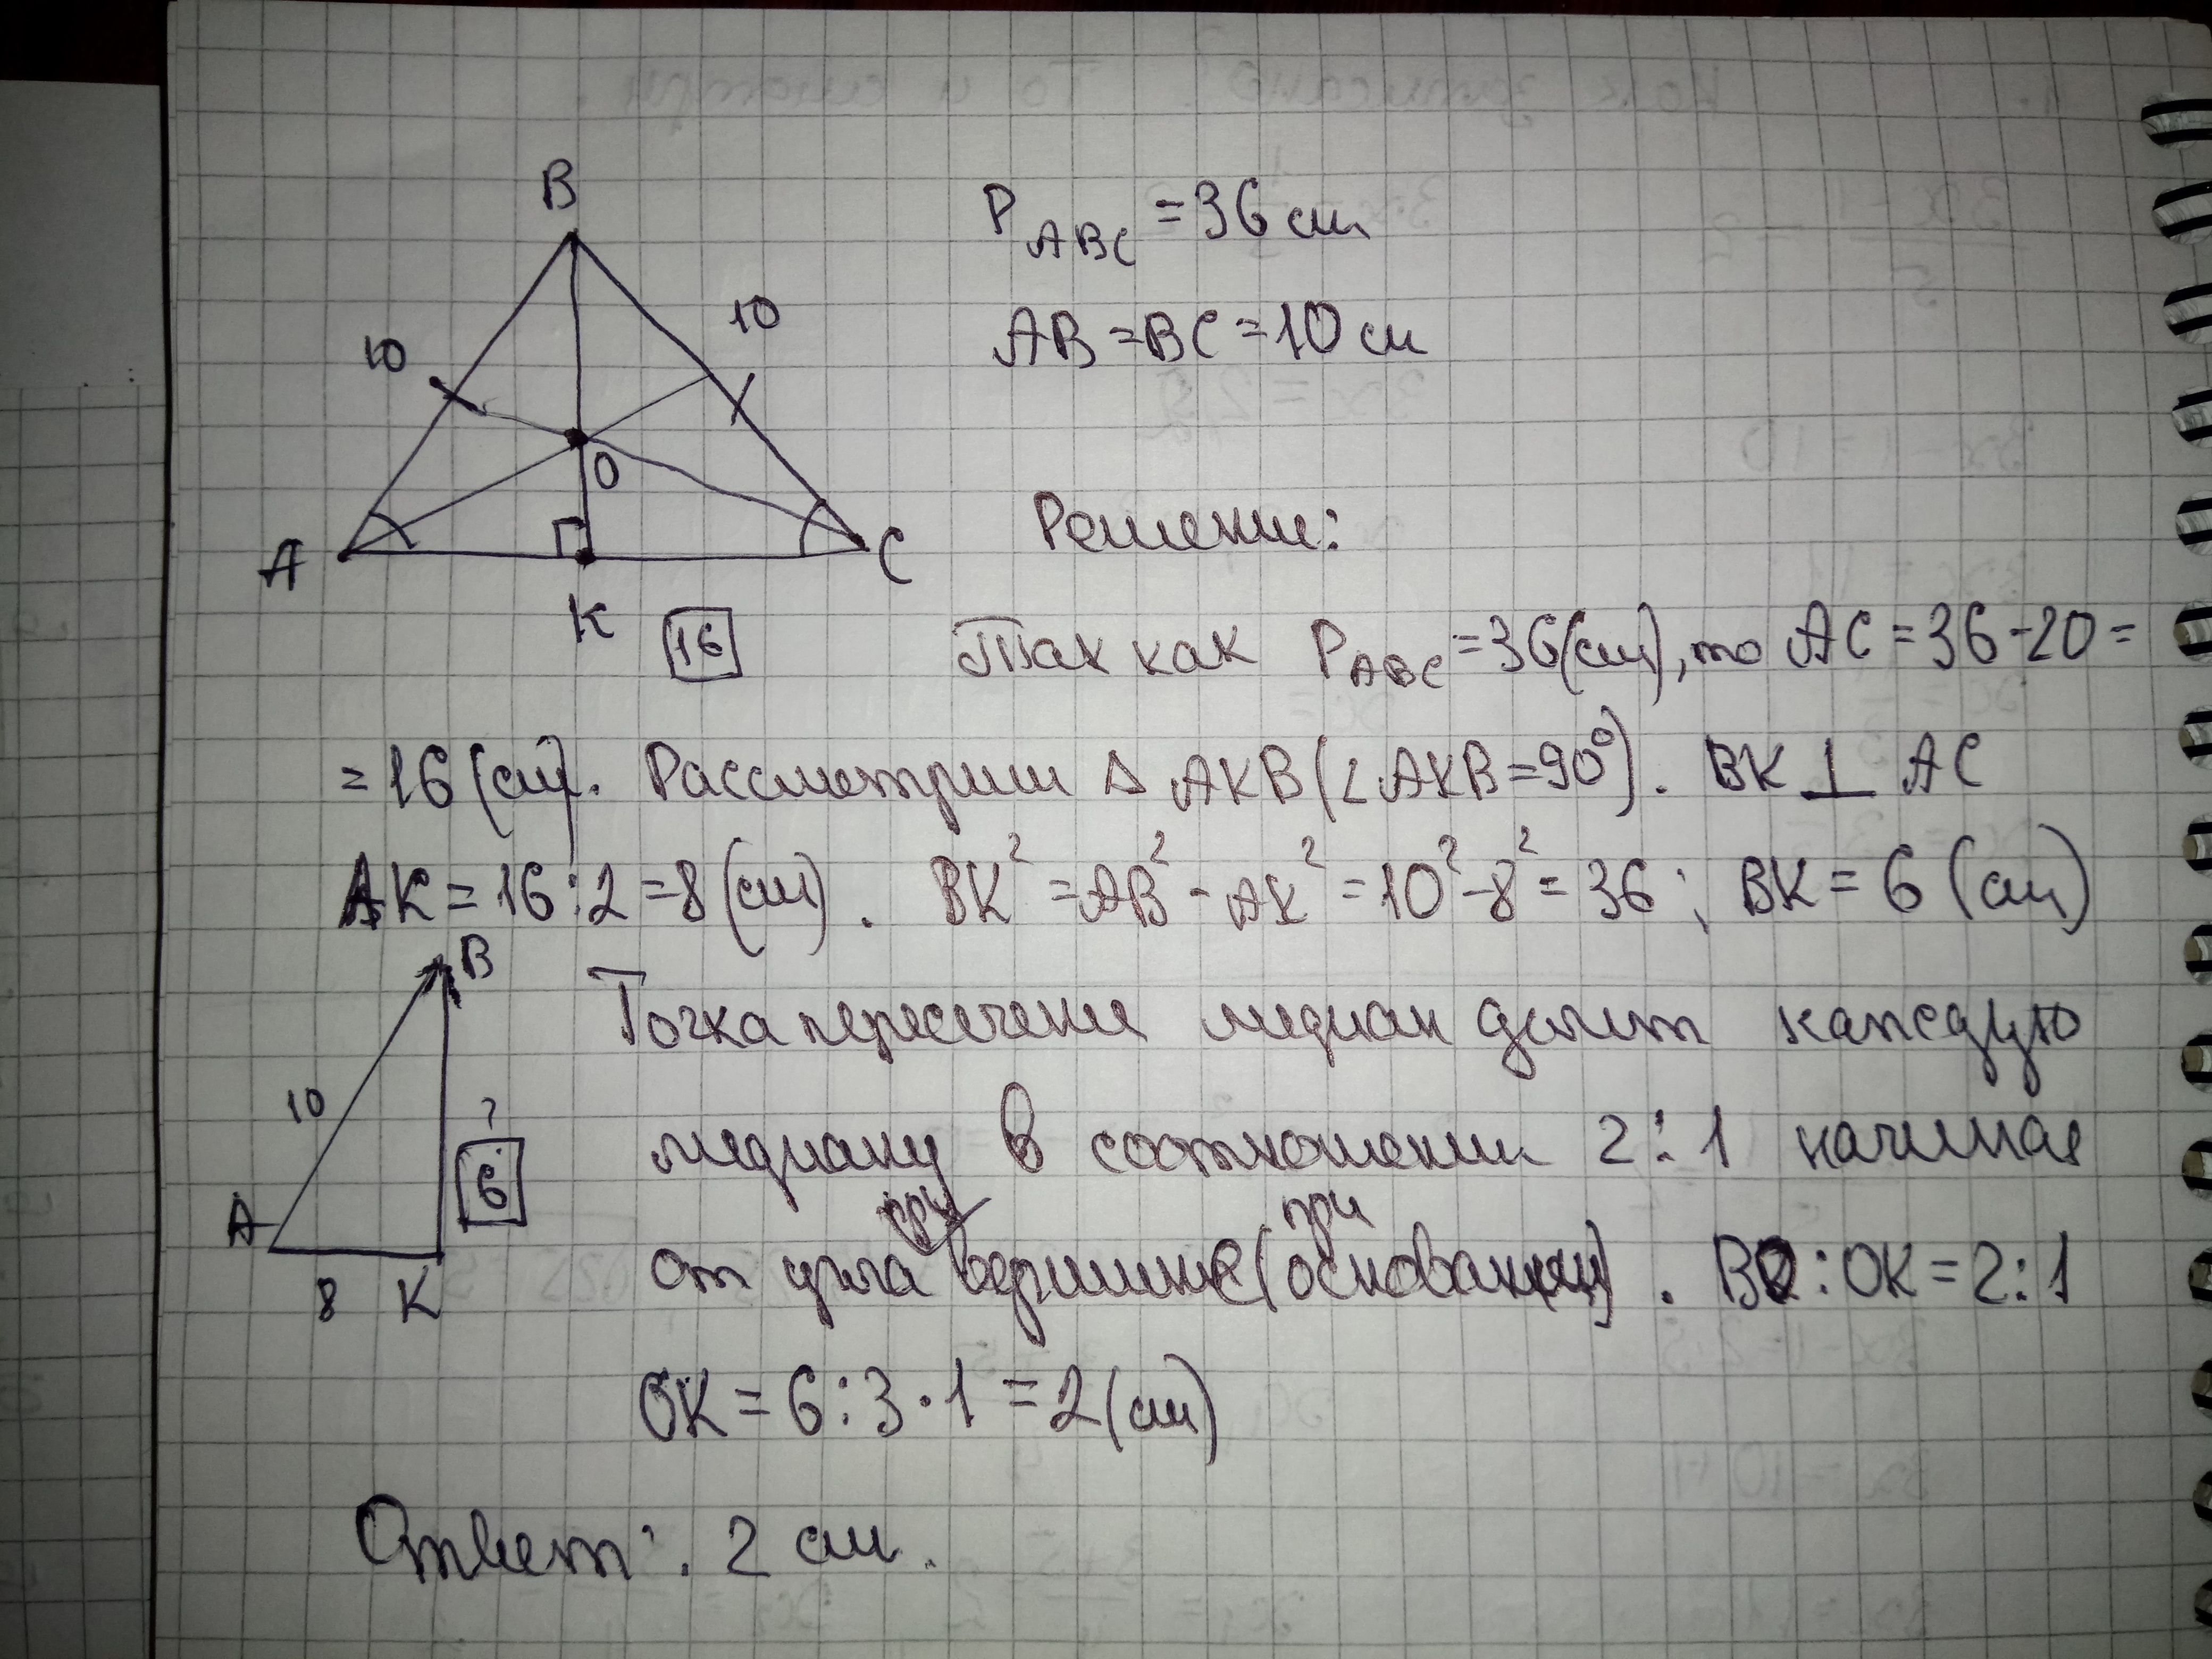 B
10
10
O
A
C
K
16
P ABC = 36 см
AB = BC = 10 см
Решение:
Так как P ABC = 36 (см), то AC = 36 - 20 =
= 16 (см). Рассмотрим Δ AKB (∠ AKB = 90°). BK ⊥ AC
AK = 16 : 2 = 8 (см). BK² = AB² - AK² = 10² - 8² = 36; BK = 6 (см)
B
10
?
6
A
8
K
Точка пересечения медиан делит каждую
медиану в соотношении 2 : 1 начиная
при
от угла вершины (основания). BO : OK = 2 : 1
OK = 6 : 3 · 1 = 2 (см)
Ответ: 2 см.